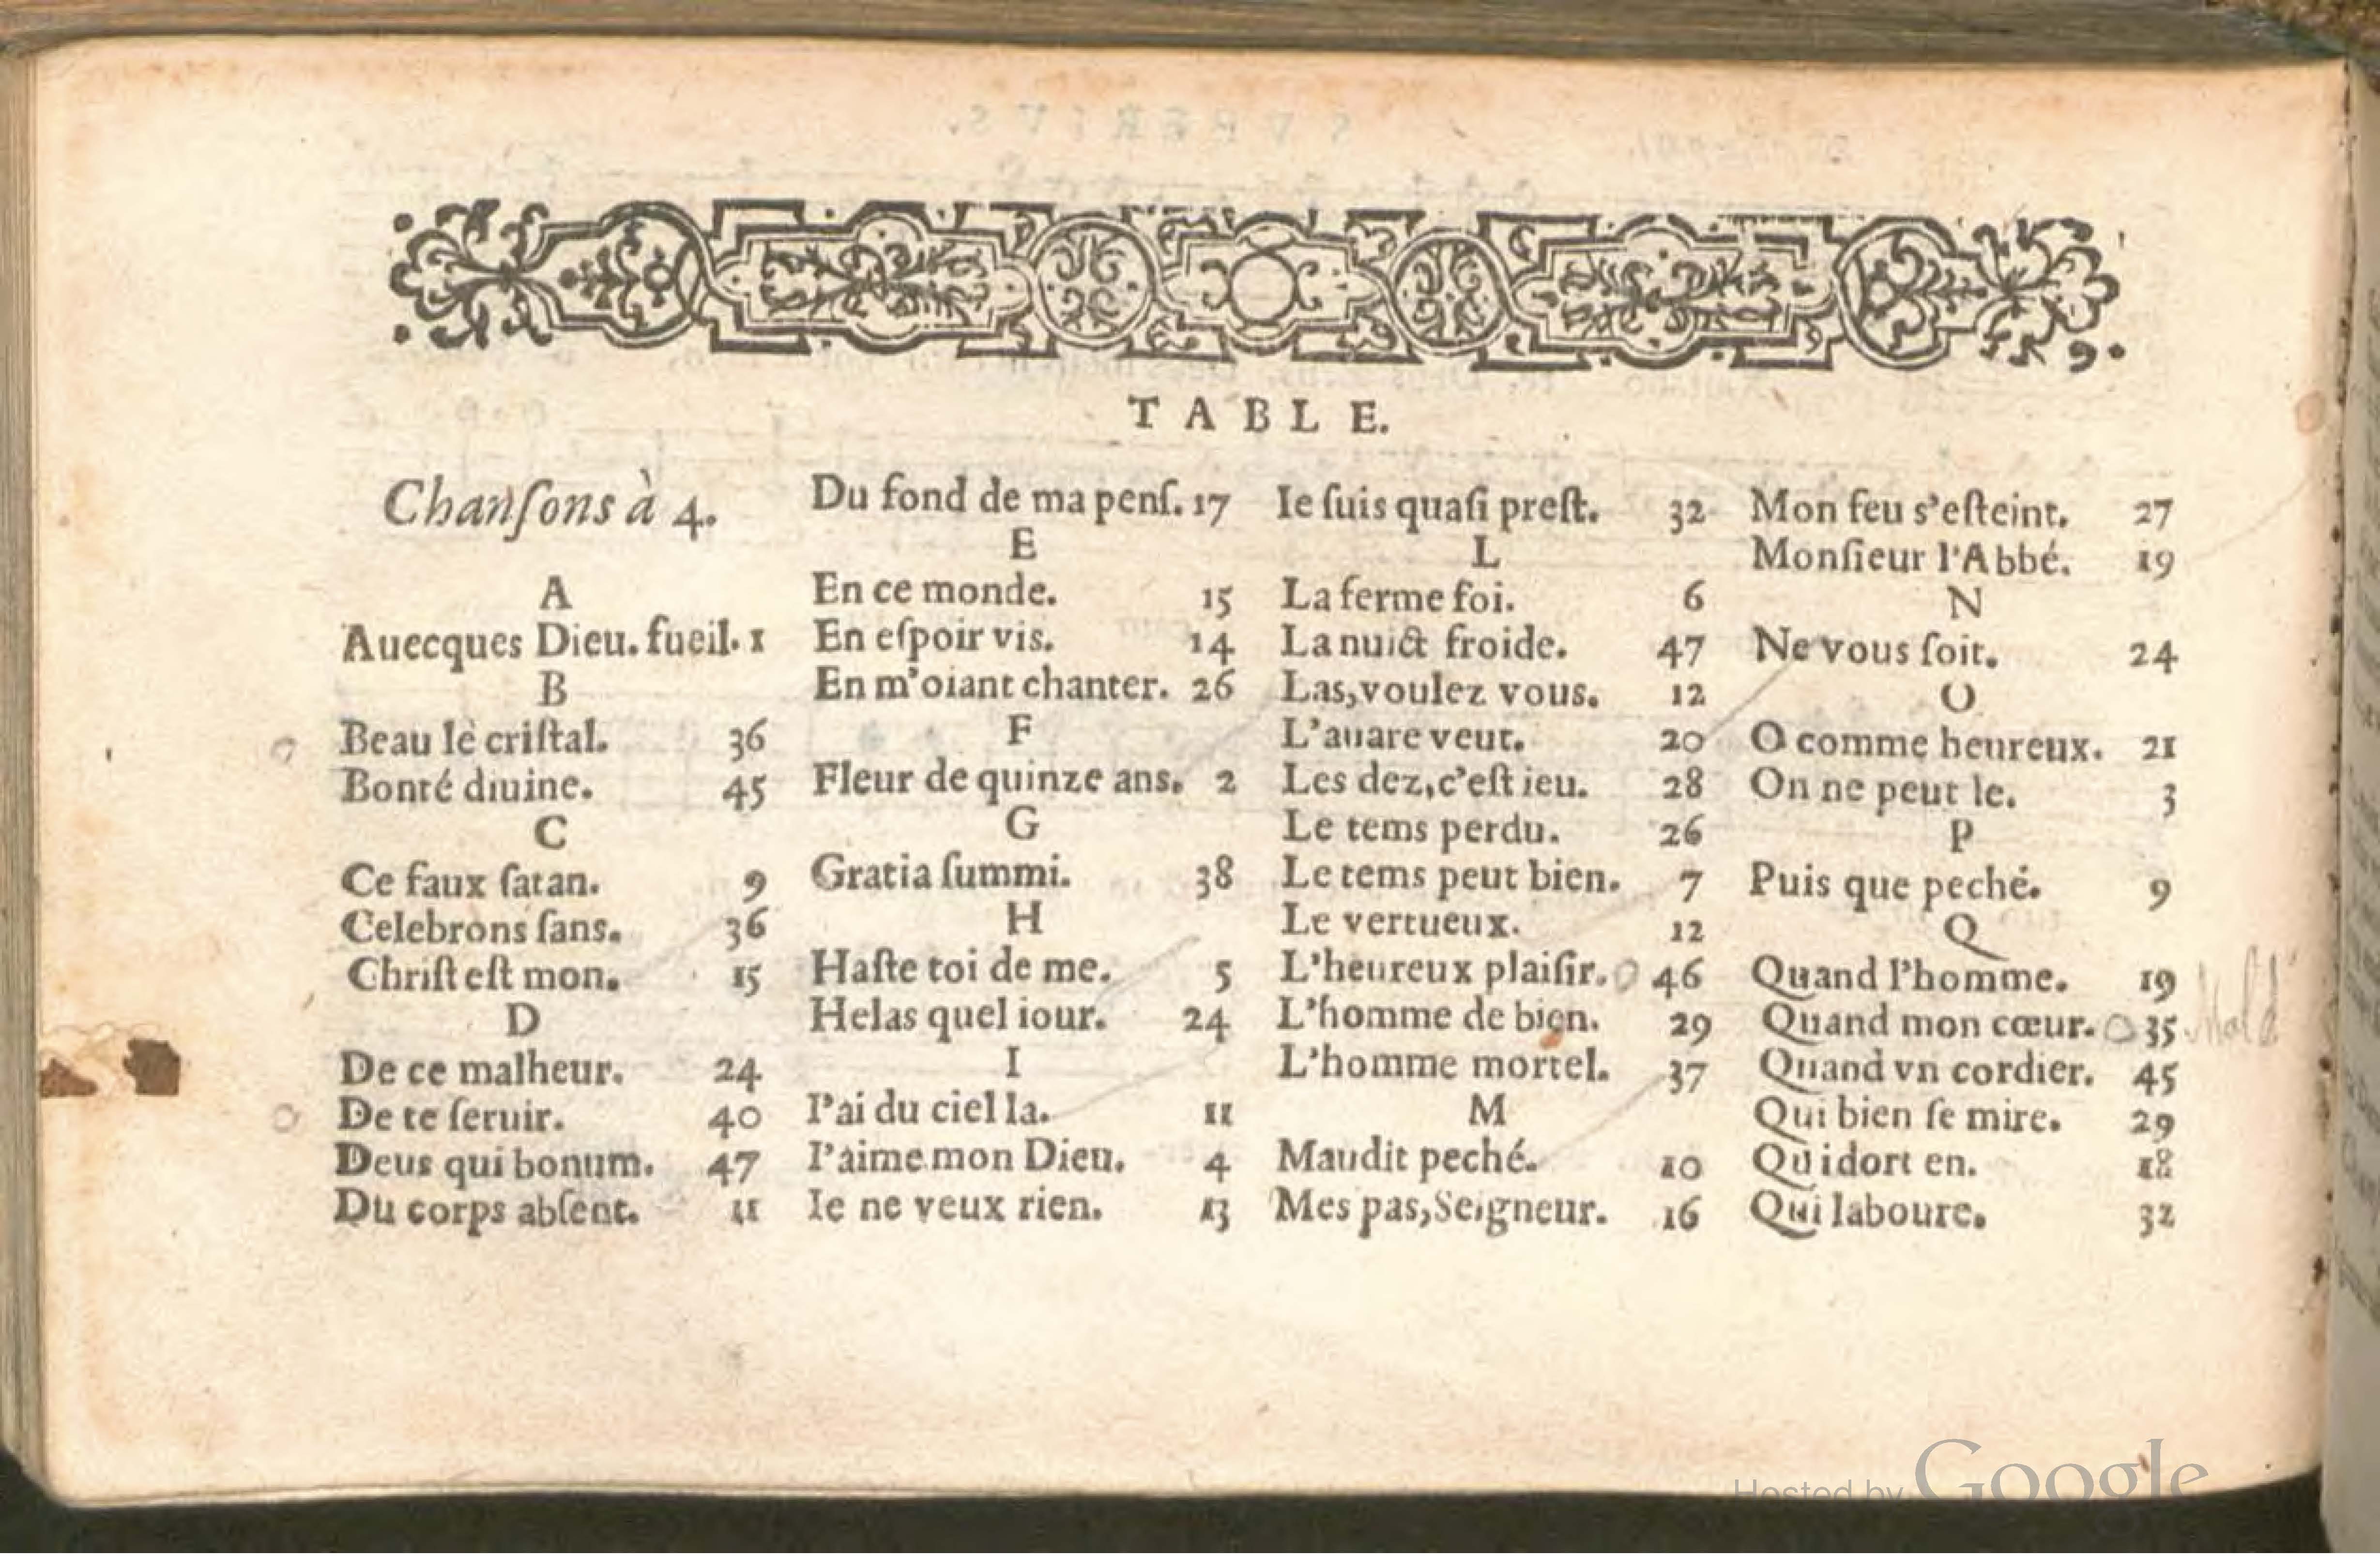 TABLE.
Chanſons à 4.
A
Auecques Dieu. fueil. 1
B
Beau le criſtal. 36
Bonté diuine. 45
C
Ce faux ſatan. 9
Celebrons ſans. 36
Chriſt eſt mon. 15
D
De ce malheur. 24
De te ſeruir. 40
Deus qui bonum. 47
Du corps abſent. 11
Du fond de ma penſ. 17
E
En ce monde. 15
En eſpoir vis. 14
En m'oiant chanter. 26
F
Fleur de quinze ans. 2
G
Gratia ſummi. 38
H
Haſte toi de me. 5
Helas quel iour. 24
I
I'ai du ciel la. 11
I'aime mon Dieu. 4
Ie ne veux rien. 13
Ie ſuis quaſi preſt. 32
L
La ferme foi. 6
La nuict froide. 47
Las, voulez vous. 12
L'auare veut. 20
Les dez, c'eſt ieu. 28
Le tems perdu. 26
Le tems peut bien. 7
Le vertueux. 12
L'heureux plaiſir. 46
L'homme de bien. 29
L'homme mortel. 37
M
Maudit peché. 10
Mes pas, Seigneur. 16
Mon feu s'eſteint. 27
Monſieur l'Abbé. 19
N
Ne vous ſoit. 24
O
O comme heureux. 21
On ne peut le. 3
P
Puis que peché. 9
Q
Quand l'homme. 19
Quand mon cœur. 35
Quand vn cordier. 45
Qui bien ſe mire. 29
Qui dort en. 18
Qui laboure. 32
Hosted by Google